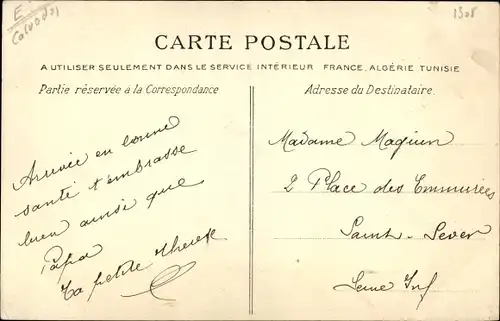 E
Calvados
1908
CARTE POSTALE
A UTILISER SEULEMENT DANS LE SERVICE INTÉRIEUR FRANCE, ALGÉRIE, TUNISIE
Partie réservée à la Correspondance
Adresse du Destinataire.
Arrivée en bonne
santé t'embrasse
bien ainsi que
Papa
Ta petite Therese
Madame
2 Place des Emmurées
Saint-Sever
Seine Inf